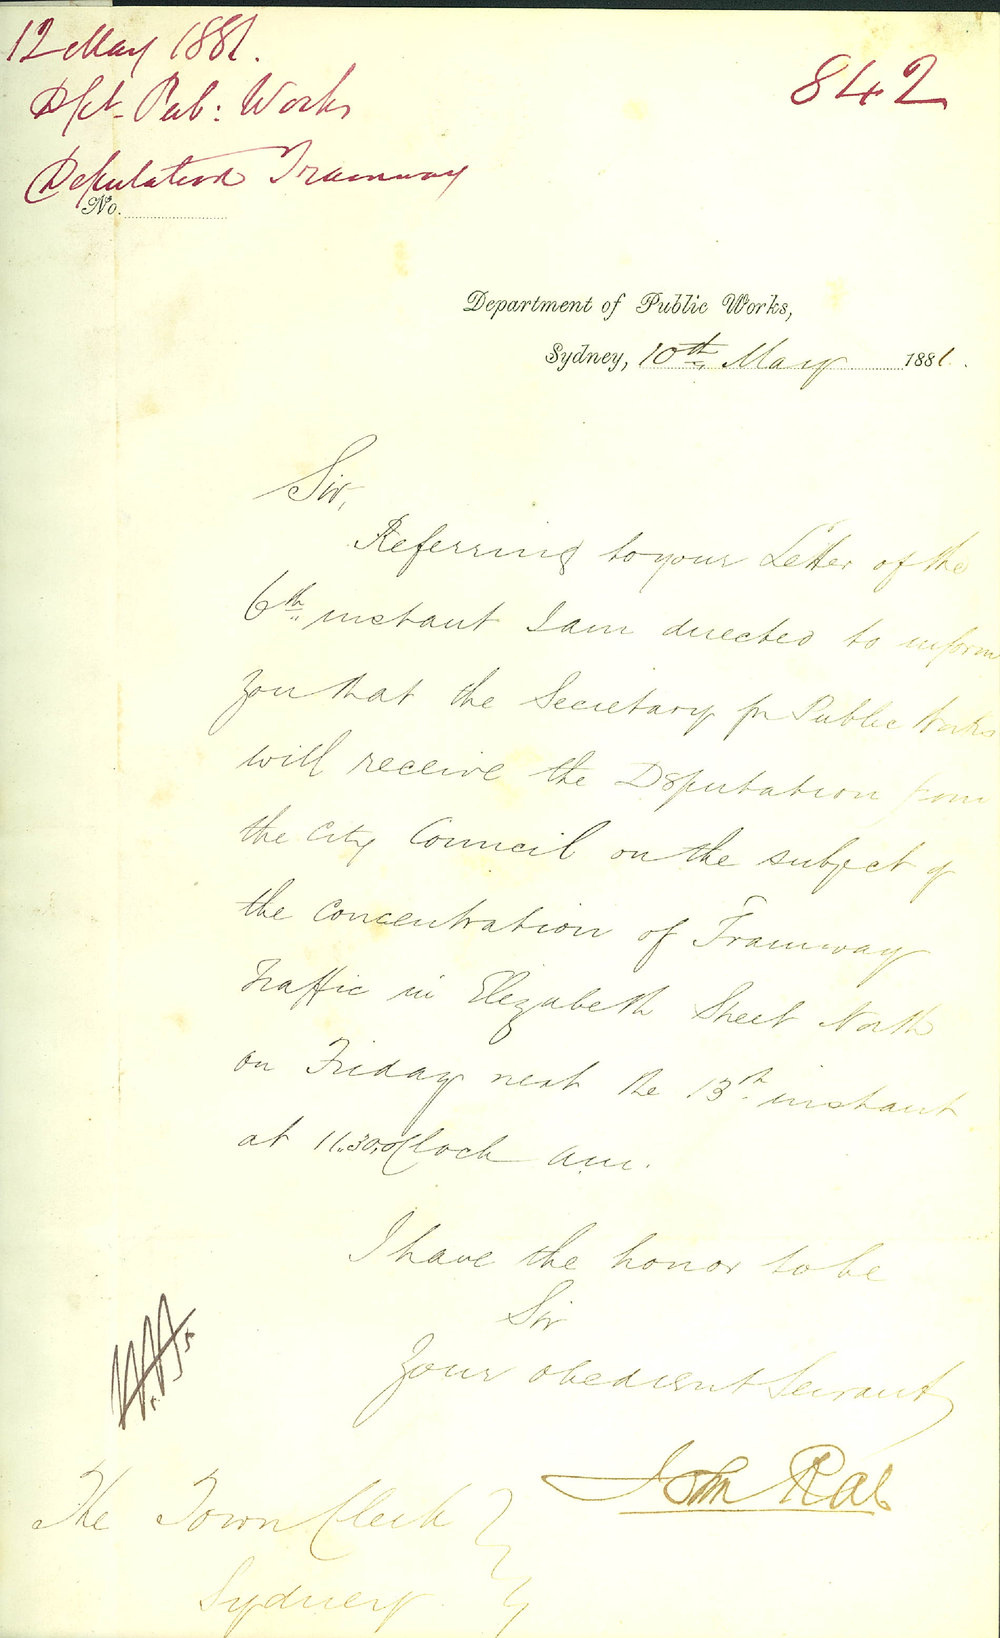 12 May 1881.
842
Dpt. Pub: Works
Deputation Tramway
No.
Department of Public Works,
Sydney, 10th May 1881.
Sir,
Referring to your Letter of the
6th instant I am directed to inform
you that the Secretary for Public Works
will receive the Deputation from
the City Council on the subject of
the concentration of Tramway
Traffic in Elizabeth Street North
on Friday next the 13th instant
at 11.30 o'Clock am.
I have the honor to be
Sir
Your obedient Servant
John Rae
The Town Clerk
Sydney